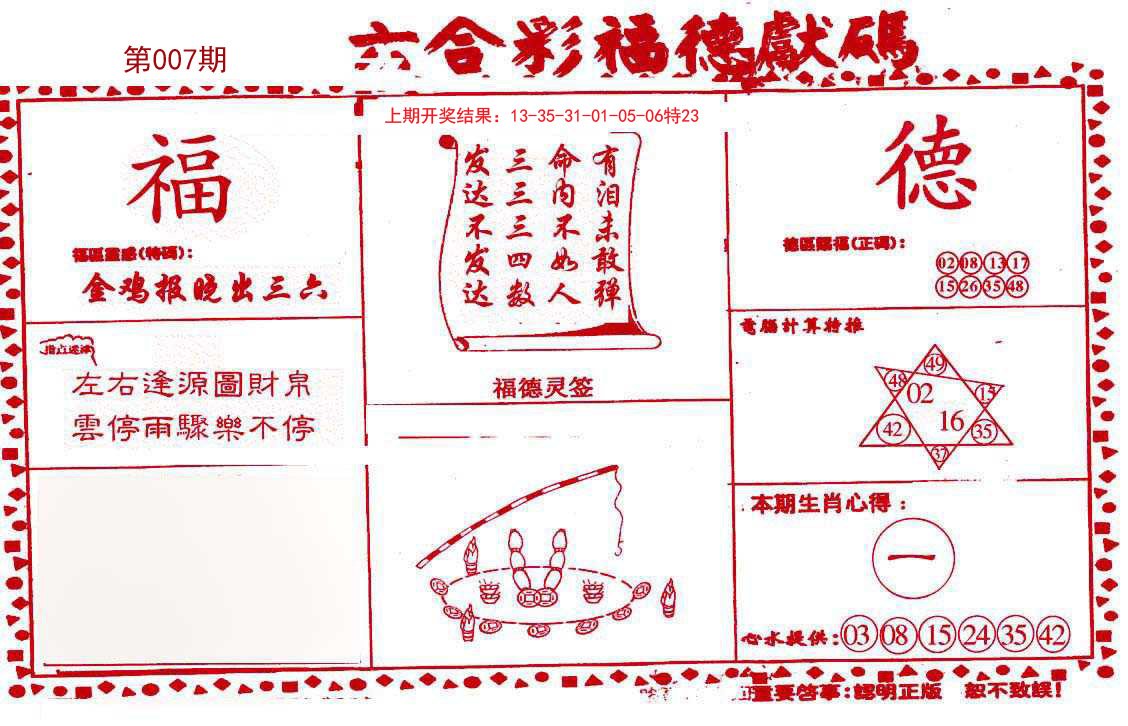 六合彩福德獻碼
第007期
上期开奖结果：13-35-31-01-05-06特23
福
福區靈感(特碼)：
金鸡报晓出三六
左右逢源圖財帛
雲停雨驟樂不停
有泪未敢弹
命内不如人
三三三四数
发达不发达
福德灵签
德
德區賜福(正碼)：
02 08 13 17
15 26 35 48
電腦計算特推
49
48 02 15
42 16 35
37
本期生肖心得：
一
心水提供：03 08 15 24 35 42
重要啓事：認明正版 恕不致誤！